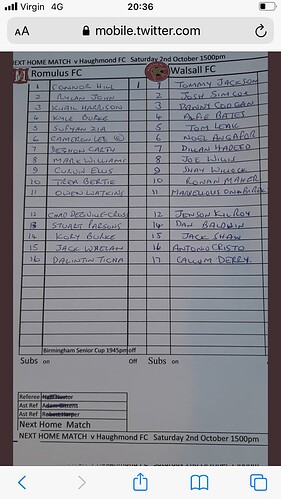 Virgin 4G 20:36
AA mobile.twitter.com
NEXT HOME MATCH v Haughmond FC Saturday 2nd October 1500pm
Romulus FC Walsall FC
1 CONNOR HILL 1 1 TOMMY JACKSON
2 DYLAN JOHN 2 JOSH SIMCOX
3 KHAIL HARRISON 3 DANNY COOGAN
4 KYLE BURKE 4 ALFIE BATES
5 SUFYAN ZIA 5 TOM LEAK
6 CAMERON LEE 6 NOEL
7 7 DILLAN
8 MARK WILLIAMS 8 JOE WILLIS
9 ELLIS 9 SHAY WILLOCK
10 BERTIE 10 RONAN MAHER
11 OWEN WATKINS 11 MARVELLOUS
12 CHAD 12 JENSON KILROY
13 STUART PARSONS 14 DAN BALDWIN
14 KORY BURKE 15 JACK SHAW
15 JACK WHELAN 16 ANTONIO CRISTO
16 17 CALLUM DERRY.
Birmingham Senior Cup 1945pm off
Subs on Off Subs on
Referee
Ast Ref
Ast Ref
Next Home Match
NEXT HOME MATCH v Haughmond FC Saturday 2nd October 1500pm